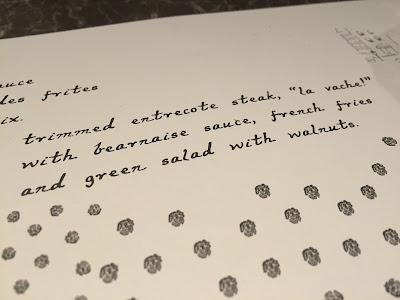 auce
des frites
ix.
trimmed entrecote steak, "la vache!"
with bearnaise sauce, french fries
and green salad with walnuts.